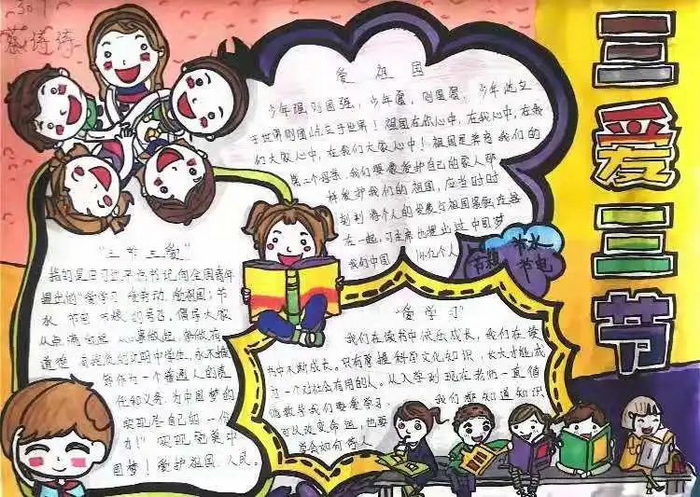 301
蔡诗琦
三爱三节
爱祖国
少年强,则国强,少年富,则国富,少年屹立
于世界则国屹立于世界!祖国在你心中,在我心中,在我
们大家心中,在我们大家心中!祖国是养育我们的
第二个母亲,我们要像爱护自己的家人那
样爱护我们的祖国,应当时时
刻刻将个人的发展与祖国紧密连接
在一起,习主席也提出过中国梦
我们中国 亿个人
节粮 节水
节电
“三节三爱”
指的是习近平总书记向全国青年
提出的“爱学习 爱劳动 爱祖国,节
水 节电 节粮的号召,倡导大家
从点滴做起 从小事做起,新做有
道德 有
能作为一个普通人的责
任和义务 为中国梦的
实现尽自己的一份
力!” 实现完美中
国梦!爱护祖国 人民。
“爱学习”
我们在读书中快乐成长,我们在读
书中不断成长。只有掌握科学文化知识,长大才能成
为一个对社会有用的人。从入学到现在老师一直循
循教导我们要爱学习 我们都知道知识
可以改变命运,也要
学会如何待人